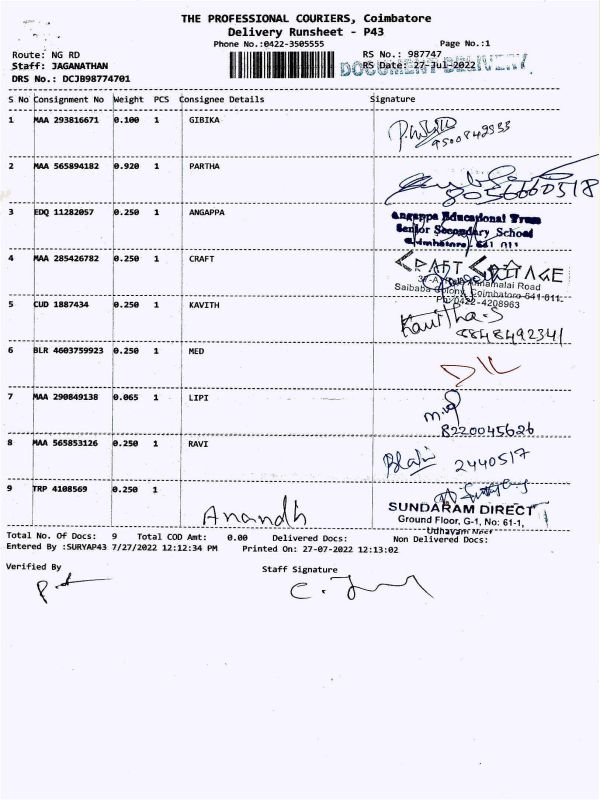 THE PROFESSIONAL COURIERS, Coimbatore
Delivery Runsheet - P43
Phone No.:0422-3505555 Page No.:1
Route: NG RD RS No.: 987747
Staff: JAGANATHAN RS Date: 27-Jul-2022 DOCUMENT DELIVERY
DRS No.: DCJB98774701
S No Consignment No Weight PCS Consignee Details Signature
1 MAA 293816671 0.100 1 GIBIKA
2 MAA 565894182 0.920 1 PARTHA
8056660518
3 EDQ 11282057 0.250 1 ANGAPPA
Angappa Educational Trust
Senior Secondary School
Coimbatore- 641 011
4 MAA 285426782 0.250 1 CRAFT
CRAFT COTTAGE
Annamalai Road
Saibaba Colony, Coimbatore-641 011.
Ph:0422-4208963
5 CUD 1887434 0.250 1 KAVITH
Kavitha.S
8848492341
6 BLR 4603759923 0.250 1 MED
7 MAA 290849138 0.065 1 LIPI
8220045626
8 MAA 565853126 0.250 1 RAVI
2440517
9 TRP 4108569 0.250 1
Anandh
SUNDARAM DIRECT
Ground Floor, G-1, No: 61-1,
Udhayam Neer
Total No. Of Docs: 9 Total COD Amt: 0.00 Delivered Docs: Non Delivered Docs:
Entered By :SURYAP43 7/27/2022 12:12:34 PM Printed On: 27-07-2022 12:13:02
Verified By Staff Signature